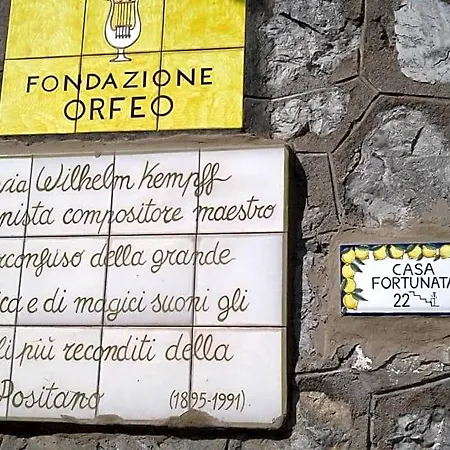 FONDAZIONE
ORFEO
via Wilhelm Kempff
nista compositore maestro
rconfuso della grande
ica e di magici suoni gli
li più reconditi della
Positano (1895-1991)
CASA
FORTUNATA
22